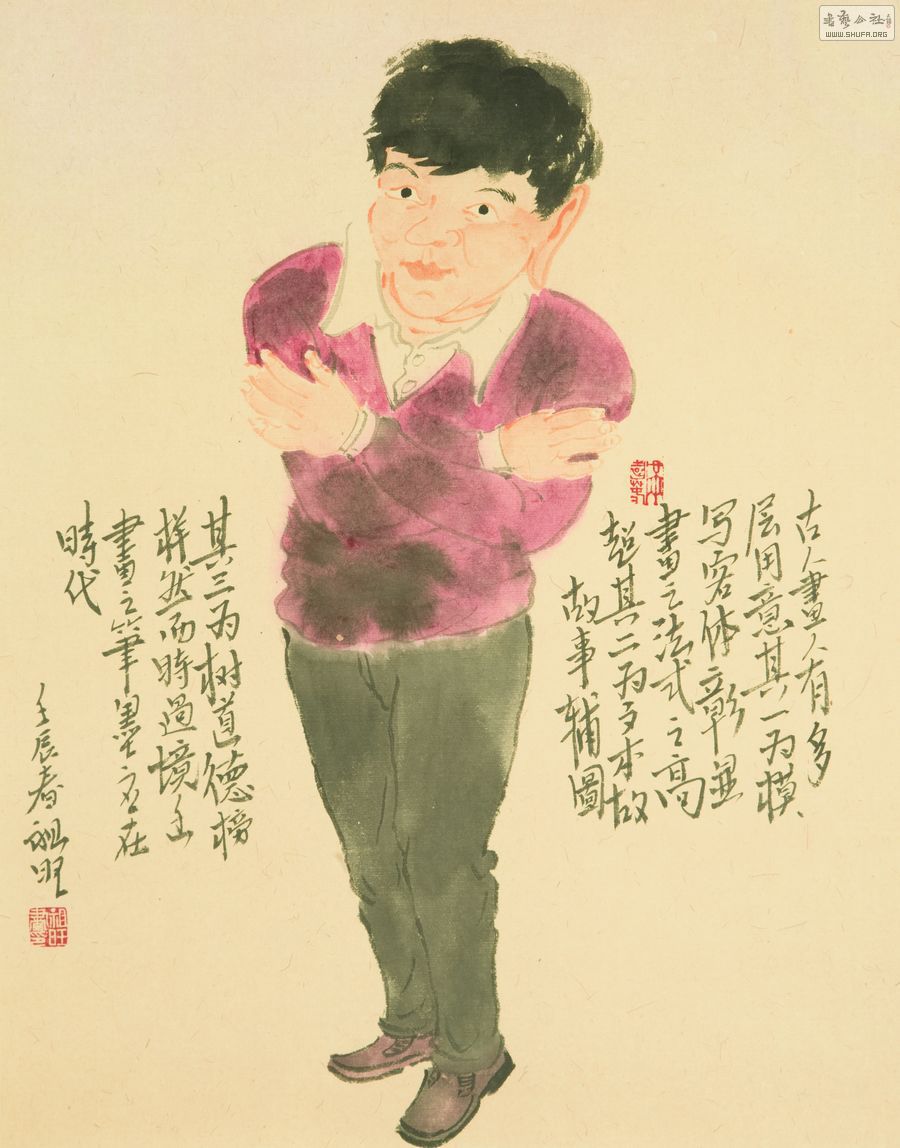 書藝公社
WWW.SHUFA.ORG
古人畫人有多
层用意其一为模
写容体彰显
畫之法式之高
超其二为本故
故事辅圖
其三为树道德榜
样然而時過境迁
畫之筆墨在
時代
壬辰春祖旺
祖旺畫印